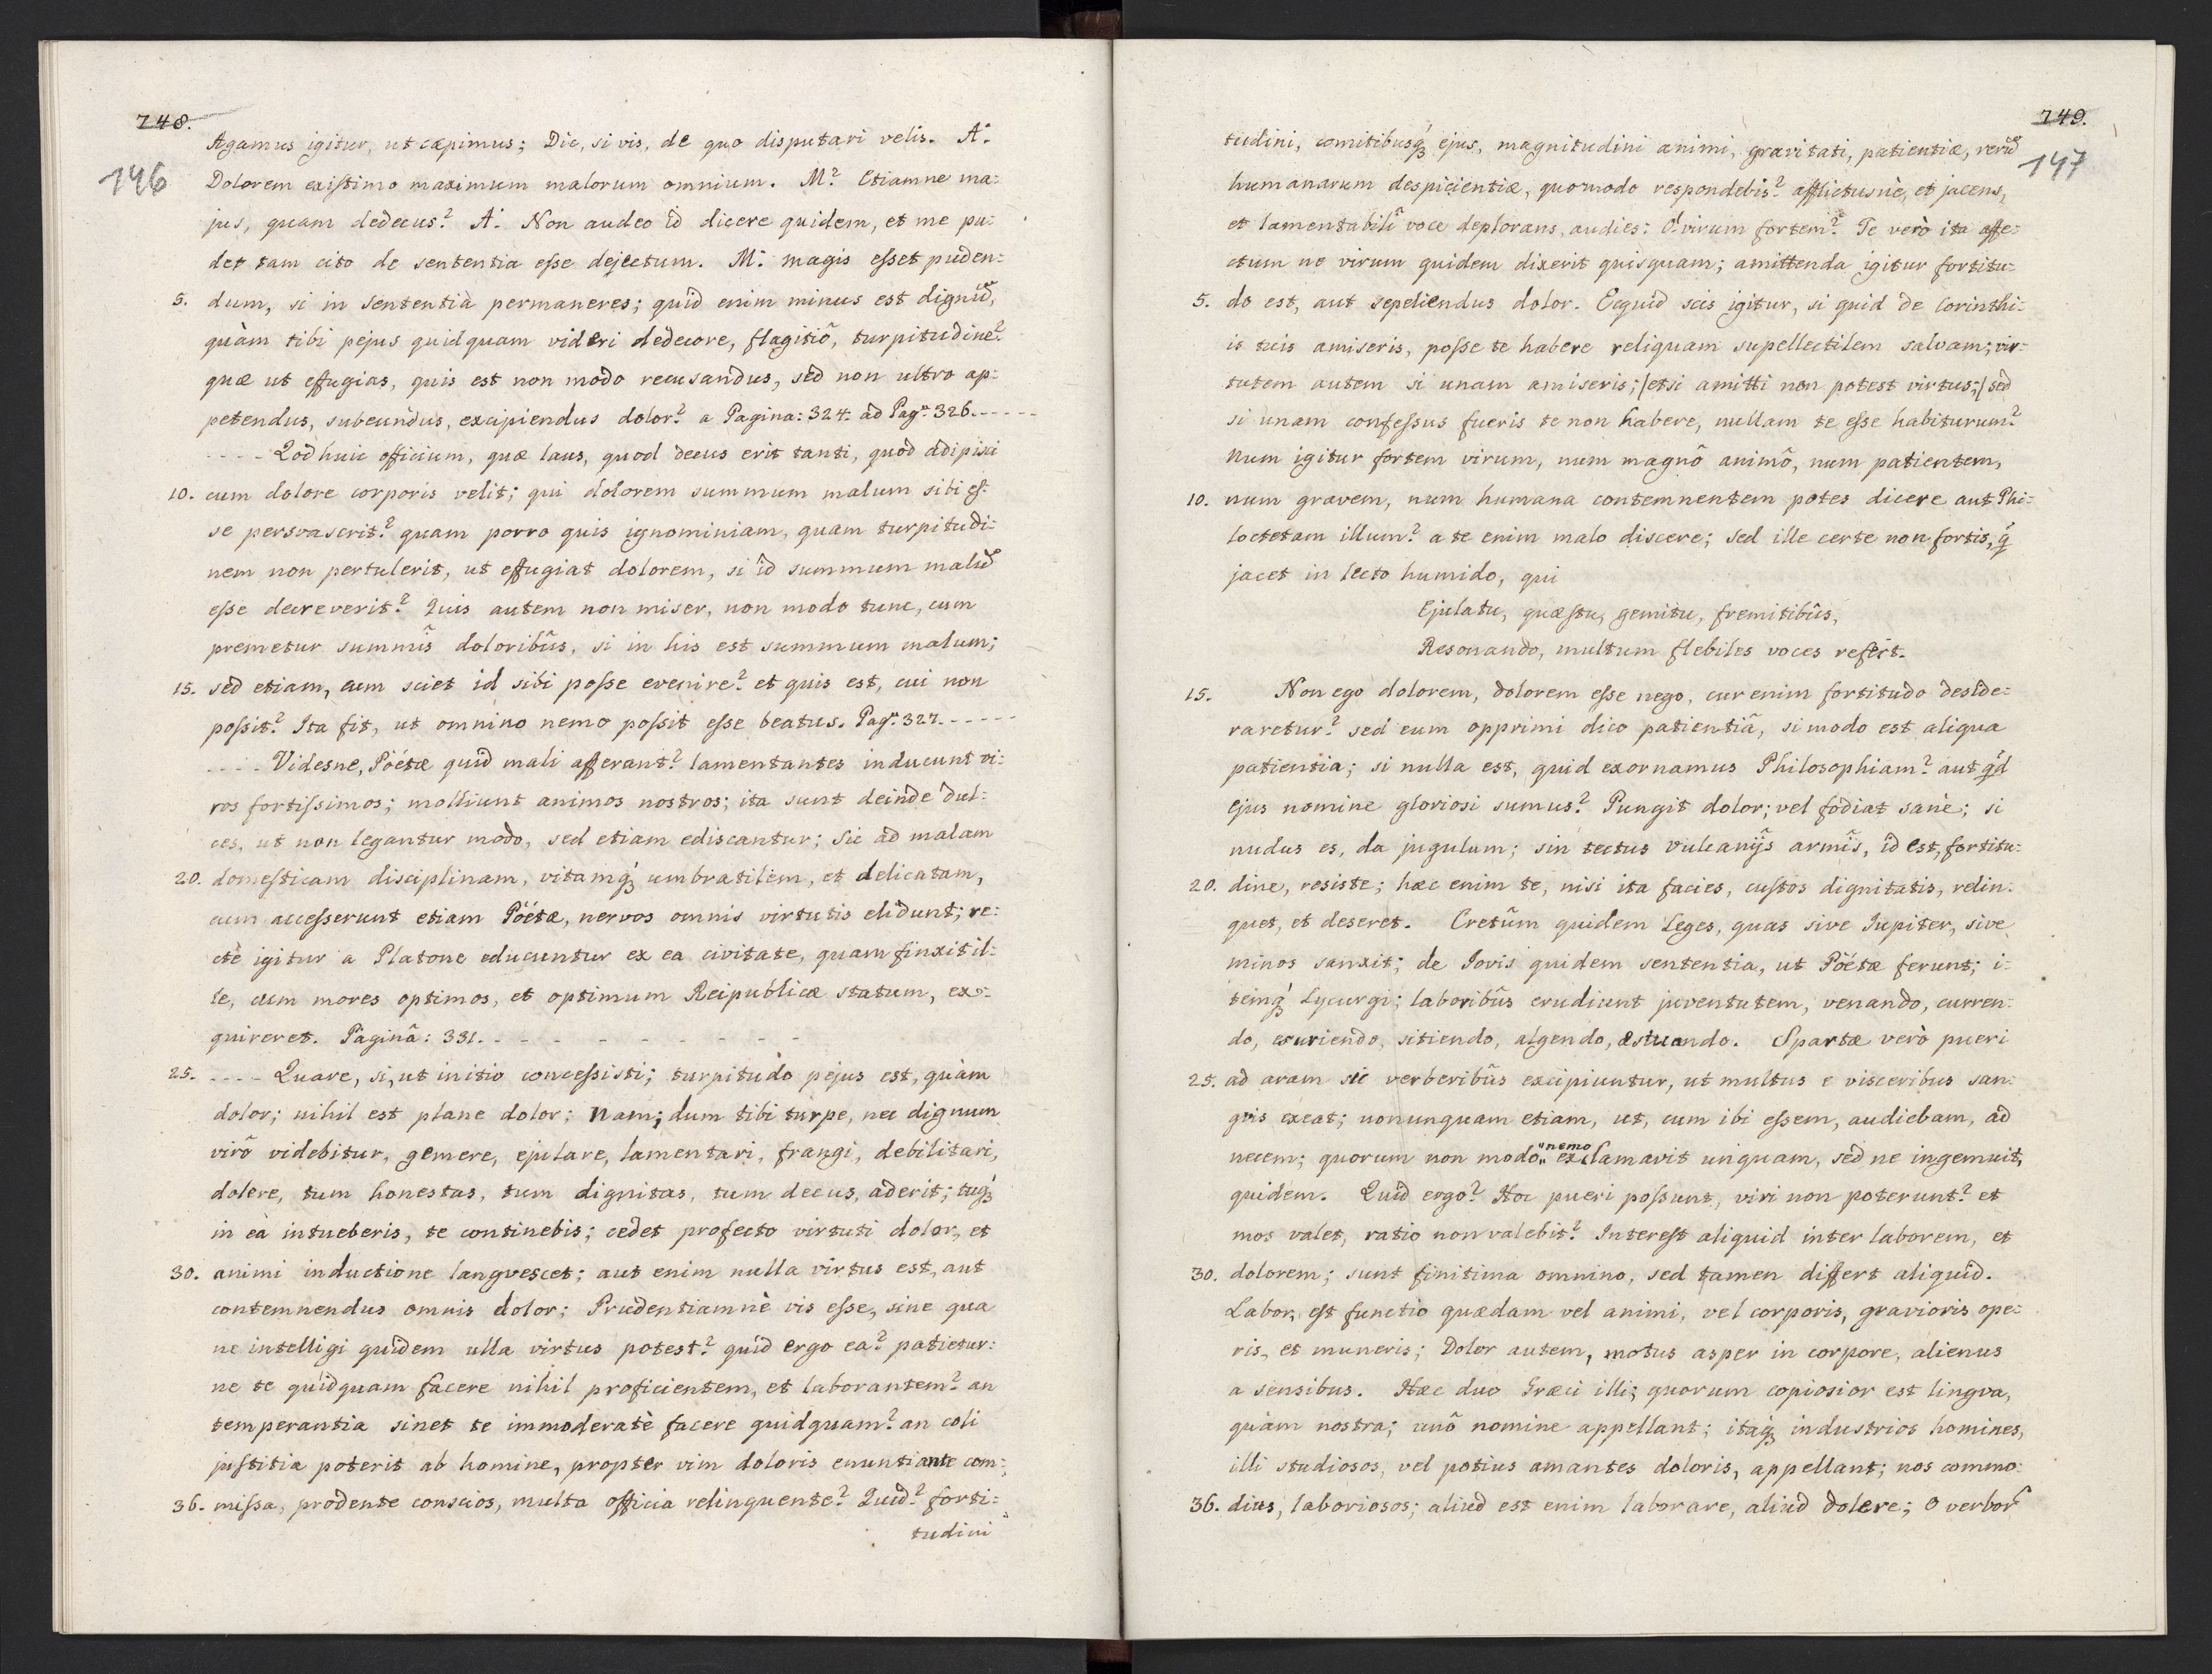 748.
146
Agamus igitur, ut cæpimus; Dic, si vis, de quo disputari velis. A:
Dolorem existimo maximum malorum omnium. M? Etiamne ma:
jus, quam dedecus? A: Non audeo id dicere quidem, et me pu:
det tam cito de sententia esse dejectum. M: magis esset puden:
5. dum, si in sententia permaneres; quid enim minus est dignũ,
quàm tibi pejus quidquam videri dedecore, flagitiô, turpitudine?
quæ ut effugias, quis est non modo recusandus, sed non ultro ap:
petendus, subeundus, excipiendus dolor? a Pagina: 324. ad Pag: 326.-----
---- Qod huic officium, quæ laus, quod decus erit tanti, quod adipisci
10. cum dolore corporis velit; qui dolorem summum malum sibi es:
se persvaserit? quam porro quis ignominiam, quam turpitudi:
nem non pertulerit, ut effugiat dolorem, si id summum malũ
esse decreverit? Quis autem non miser, non modo tunc, cum
premetur summîs doloribûs, si in his est summum malum;
15. sed etiam, cum sciet id sibi posse evenire? et quis est, cui non
possit? Ita fit, ut omnino nemo possit esse beatus. Pag: 327.-----
---- Videsne, Pöétæ quid mali afferant? lamentantes inducunt vi:
ros fortissimos; molliunt animos nostros; ita sunt deinde dul:
ces, ut non legantur modo, sed etiam ediscantur; Sic ad malam
20. domesticam disciplinam, vitamq́; umbratilem, et delicatam,
cum accesserunt etiam Pöétæ, nervos omnis virtutis elidunt; re:
ctè igitur a Platone educuntur ex ea civitate, quam finxit il:
le, cum mores optimos, et optimum Reipublicæ statum, ex:
quireret. Paginâ: 331. - - - - - - - -
25. ---- Quare, si, ut initio concessisti; turpitudo pejus est, quàm
dolor; nihil est plane dolor; Nam; dum tibi turpe, nec dignum
virô videbitur, gemere, ejulare, lamentari, frangi, debilitari,
dolere, tum honestas, tum dignitas, tum decus, aderit; tuq́;
in eà intueberis, te continebis; cedet profecto virtuti dolor, et
30. animi inductione langvescet; aut enim nulla virtus est, aut
contemnendus omnis dolor; Prudentiamnè vis esse, sine qua
ne intelligi quidem ulla virtus potest? quid ergo ea? patietur:
ne te quidquam facere nihil proficientem, et laborantem? an
temperantia sinet te immoderatè facere quidquam? an coli
justitia poterit ab homine, propter vim doloris enuntiante com:
36. missa, prodente conscios, multa officia relinquente? Quid? forti:
tudini
749.
147
tudini, comitibusq́; ejus, magnitudini animi, gravitati, patientiæ, rerũ
humanarum despicientiæ, quomodo respondebis? afflictusnè, et jacens,
et lamentabilî voce deplorans, audies: O! virum fortem? Te verò ita affe:
ctum ne virum quidem dixerit quisquam; amittenda igitur fortitu:
5. do est, aut sepeliendus dolor. Ecquid scis igitur, si quid de Corinthi:
is tuis amiseris, posse te habere reliquam supellectilem salvam; vir:
tutem autem si unam amiseris; /etsi amitti non potest virtus;/ sed
si unam confessus fueris te non habere, nullam te esse habiturum?
Num igitur fortem virum, num magnô animô, num patientem,
10. num gravem, num humana contemnentem potes dicere aut Phi:
loctetam illum? a te enim malo discere; sed ille certe non fortis, q́
jacet in lecto humido, qui
Ejulatu, quæstu, gemitu, fremitibûs,
Resonando, multum flebiles voces refert.
15. Non ego dolorem, dolorem esse nego, cur enim fortitudo deside:
raretur? sed eum opprimi dico patientiâ, si modo est aliqua
patientia; si nulla est, quid exornamus Philosophiam? aut q́d
ejus nomine gloriosi sumus? Pungit dolor; vel fodiat sanè; si
nudus es, da jugulum; sin tectus Vulcanijs armîs, id est, fortitu:
20. dine, resiste; hæc enim te, nisi ita facies, custos dignitatis, relin:
quet, et deseret. Cretûm quidem Leges, quas sive Jupiter, sive
minos sanxit; de Jovis quidem sententia, ut Pöétæ ferunt; i:
temq́; Lycurgi; laboribûs erudiunt juventutem, venando, curren:
do, esuriendo, sitiendo, algendo, æstuando. Spartæ verò pueri
25. ad aram sic verberibûs excipiuntur, ut multus e visceribus san:
gvis exeat; nonunquam etiam, ut, cum ibi essem, audiebam, ad
necem; quorum non modo „nemo„ exclamavit unquam, sed ne ingemuit,
quidem. Quid ergo? Hoc pueri possunt, viri non poterunt? et
mos valet, ratio non valebit? Interest aliquid inter laborem, et
30. dolorem; sunt finitima omnino, sed tamen differt aliquid.
Labor, est functio quædam vel animi, vel corporis, gravioris ope:
ris, et muneris; Dolor autem, motus asper in corpore, alienus
a sensibus. Hæc duo Græci illi; quorum copiosior est lingva,
quàm nostra; unô nomine appellant; itaq́; industrios homines,
illi studiosos, vel potius amantes doloris, appellant; nos commo:
36. dius, laboriosos; aliud est enim laborare, aliud dolere; O verborũ